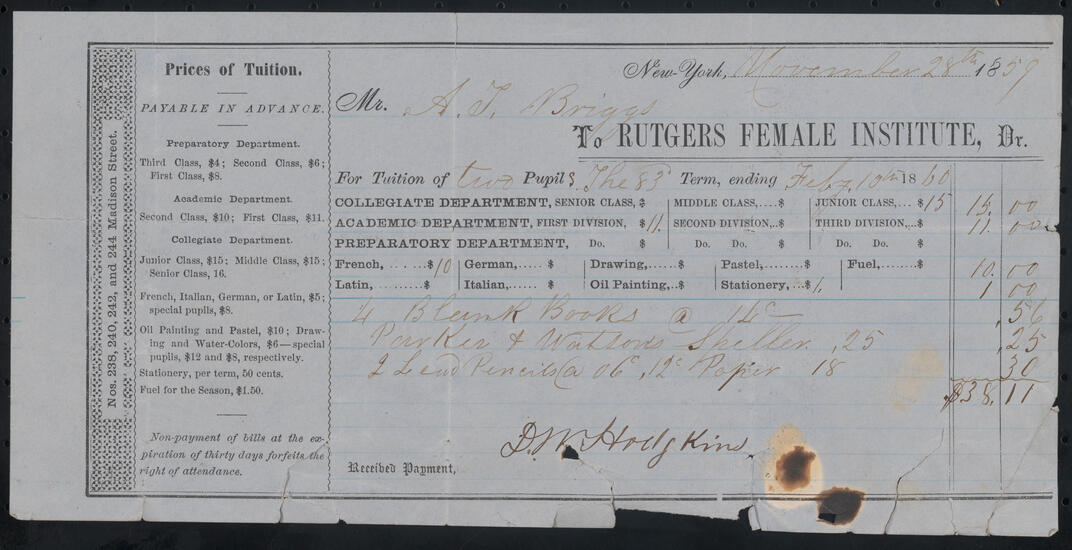 Nos. 238, 240, 242, and 244 Madison Street.
Prices of Tuition.
PAYABLE IN ADVANCE.
Preparatory Department.
Third Class, $4; Second Class, $6;
First Class, $8.
Academic Department.
Second Class, $10; First Class, $11.
Collegiate Department.
Junior Class, $15; Middle Class, $15;
Senior Class, 16.
French, Italian, German, or Latin, $5;
special pupils, $8.
Oil Painting and Pastel, $10; Draw-
ing and Water-Colors, $6—special
pupils, $12 and $8, respectively.
Stationery, per term, 50 cents.
Fuel for the Season, $1.50.
Non-payment of bills at the ex-
piration of thirty days forfeits the
right of attendance.
New-York, November 28th 1859
Mr. A. T. Briggs
To RUTGERS FEMALE INSTITUTE, Dr.
For Tuition of two Pupils The 83d Term, ending Feby 10th 1860
COLLEGIATE DEPARTMENT, SENIOR CLASS, $ MIDDLE CLASS,.... $ JUNIOR CLASS,.. $15 15.00
ACADEMIC DEPARTMENT, FIRST DIVISION, $11. SECOND DIVISION,.. $ THIRD DIVISION,.. $ 11.00
PREPARATORY DEPARTMENT, Do. $ Do. Do. $ Do. Do. $
French,........ $10 German,..... $ Drawing,...... $ Pastel,....... $ Fuel,....... $ 10.00
Latin,........ $ Italian,..... $ Oil Painting,.. $ Stationery, .. $1. 1 00
4 Blank Books @ 14c .56
Parker & Watson's Speller ,25 .25
2 Lead Pencils @ 06c ,12c Paper 18 30
$38.11
D. W. Hodgkins
Received Payment,